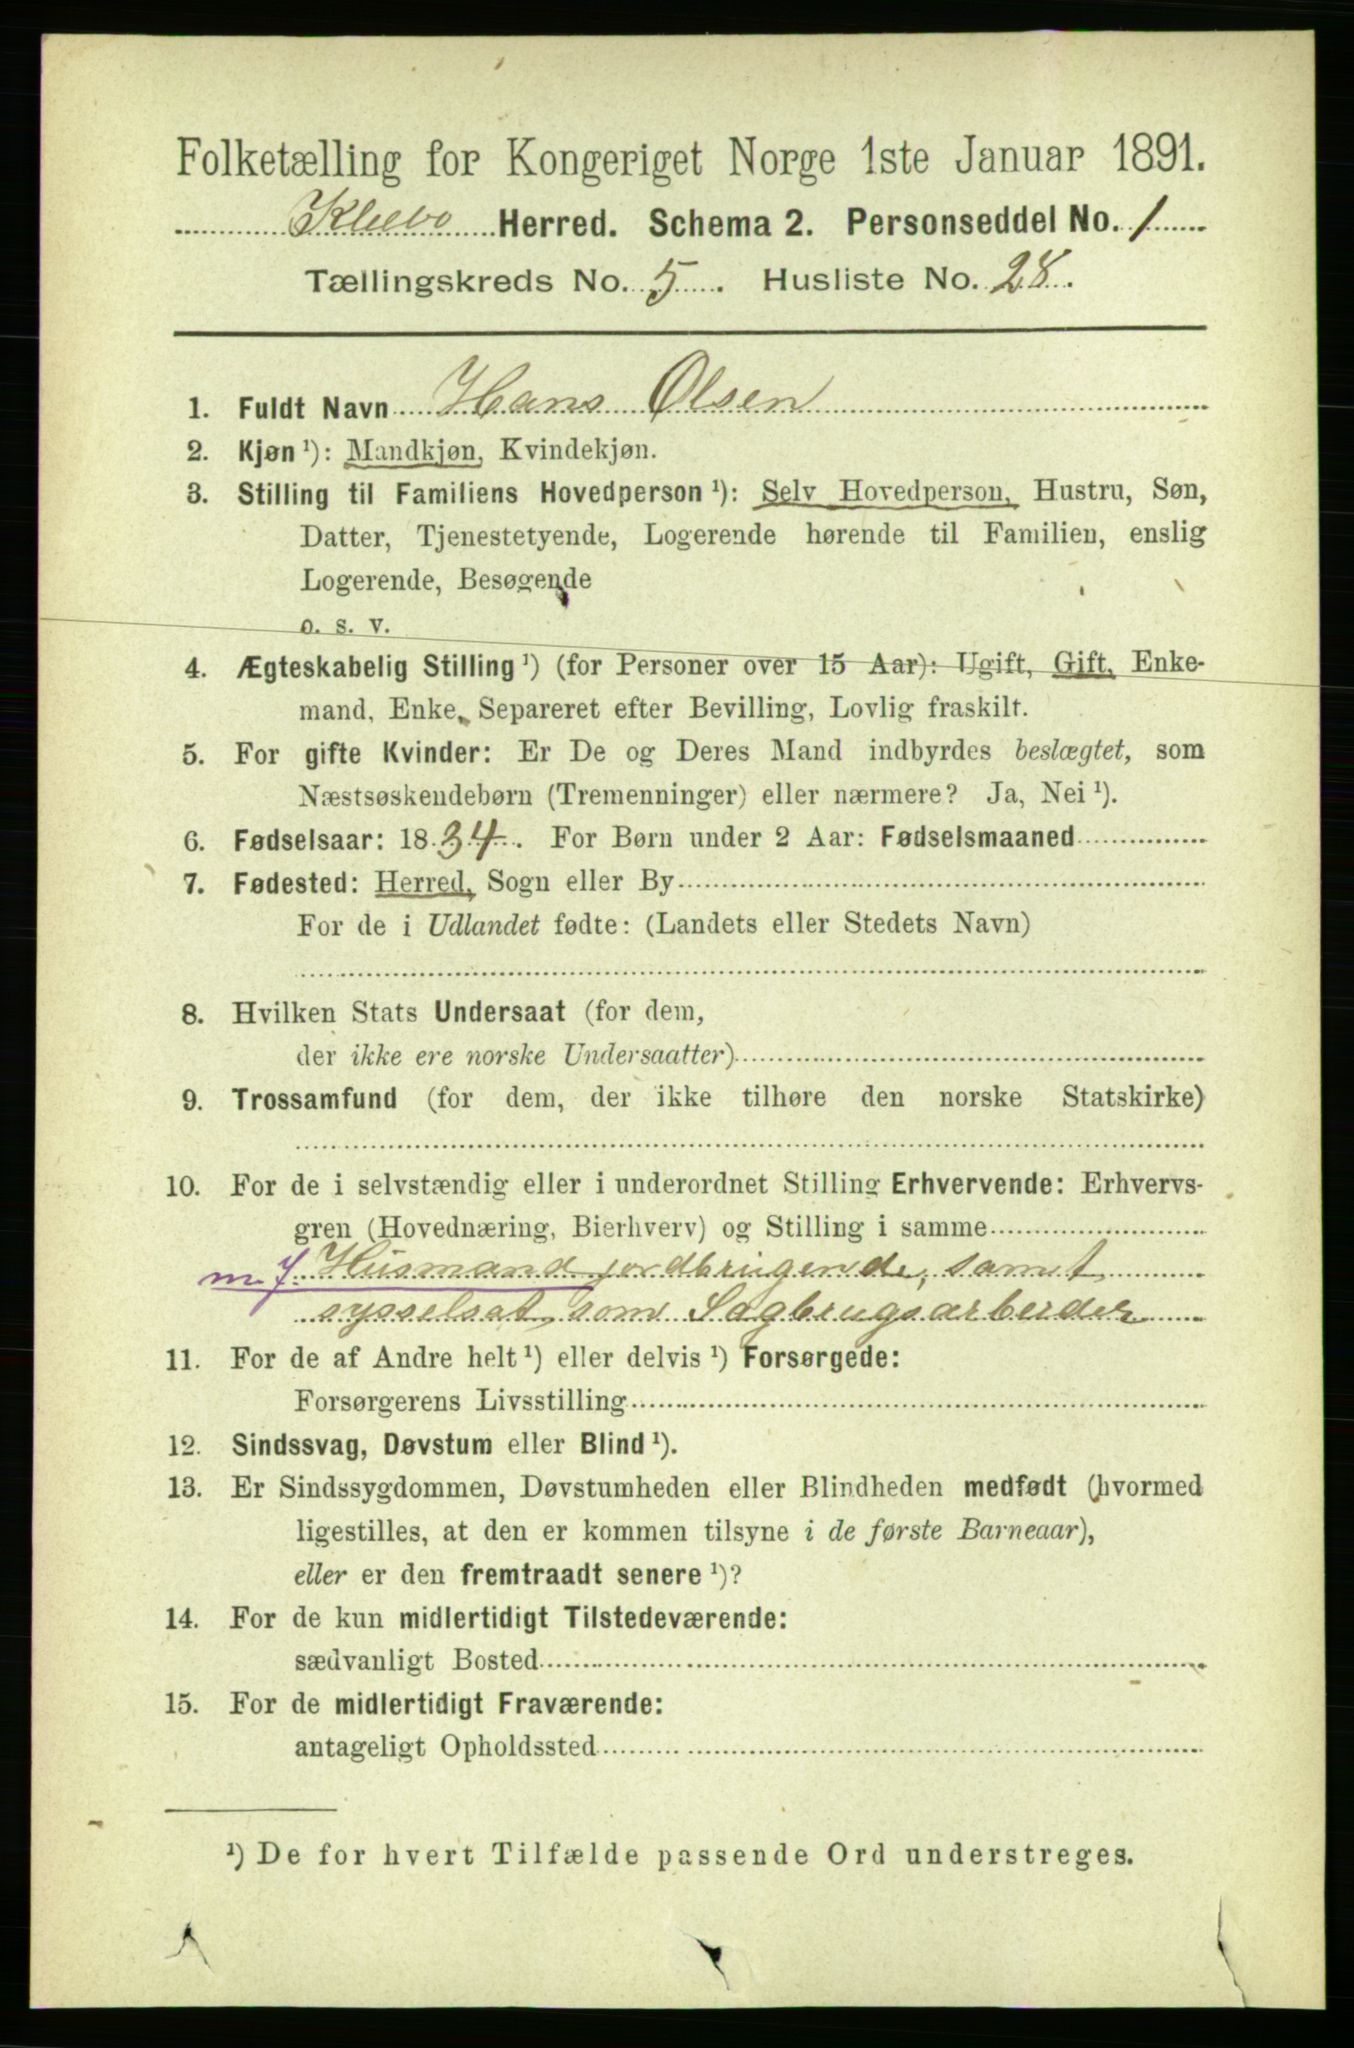 Folketælling for Kongeriget Norge 1ste Januar 1891.
Klæbo Herred. Schema 2. Personseddel No. 1
Tællingskreds No. 5. Husliste No. 28.
1. Fuldt Navn Hans Olsen
2. Kjøn ¹): Mandkjøn, Kvindekjøn.
3. Stilling til Familiens Hovedperson ¹): Selv Hovedperson, Hustru, Søn,
Datter, Tjenestetyende, Logerende hørende til Familien, enslig
Logerende, Besøgende
o. s. v.
4. Ægteskabelig Stilling ¹) (for Personer over 15 Aar): Ugift, Gift, Enke-
mand, Enke, Separeret efter Bevilling, Lovlig fraskilt.
5. For gifte Kvinder: Er De og Deres Mand indbyrdes beslægtet, som
Næstsøskendebørn (Tremenninger) eller nærmere? Ja, Nei ¹).
6. Fødselsaar: 1834. For Børn under 2 Aar: Fødselsmaaned
7. Fødested: Herred, Sogn eller By
For de i Udlandet fødte: (Landets eller Stedets Navn)
8. Hvilken Stats Undersaat (for dem,
der ikke ere norske Undersaatter)
9. Trossamfund (for dem, der ikke tilhøre den norske Statskirke)
10. For de i selvstændig eller i underordnet Stilling Erhvervende: Erhvervs-
gren (Hovednæring, Bierhverv) og Stilling i samme
m. J. Husmand jordbrugende, samt
sysselsat som Sagbrugsarbeider
11. For de af Andre helt ¹) eller delvis ¹) Forsørgede:
Forsørgerens Livsstilling
12. Sindssvag, Døvstum eller Blind ¹).
13. Er Sindssygdommen, Døvstumheden eller Blindheden medfødt (hvormed
ligestilles, at den er kommen tilsyne i de første Barneaar),
eller er den fremtraadt senere ¹)?
14. For de kun midlertidigt Tilstedeværende:
sædvanligt Bosted
15. For de midlertidigt Fraværende:
antageligt Opholdssted
¹) De for hvert Tilfælde passende Ord understreges.